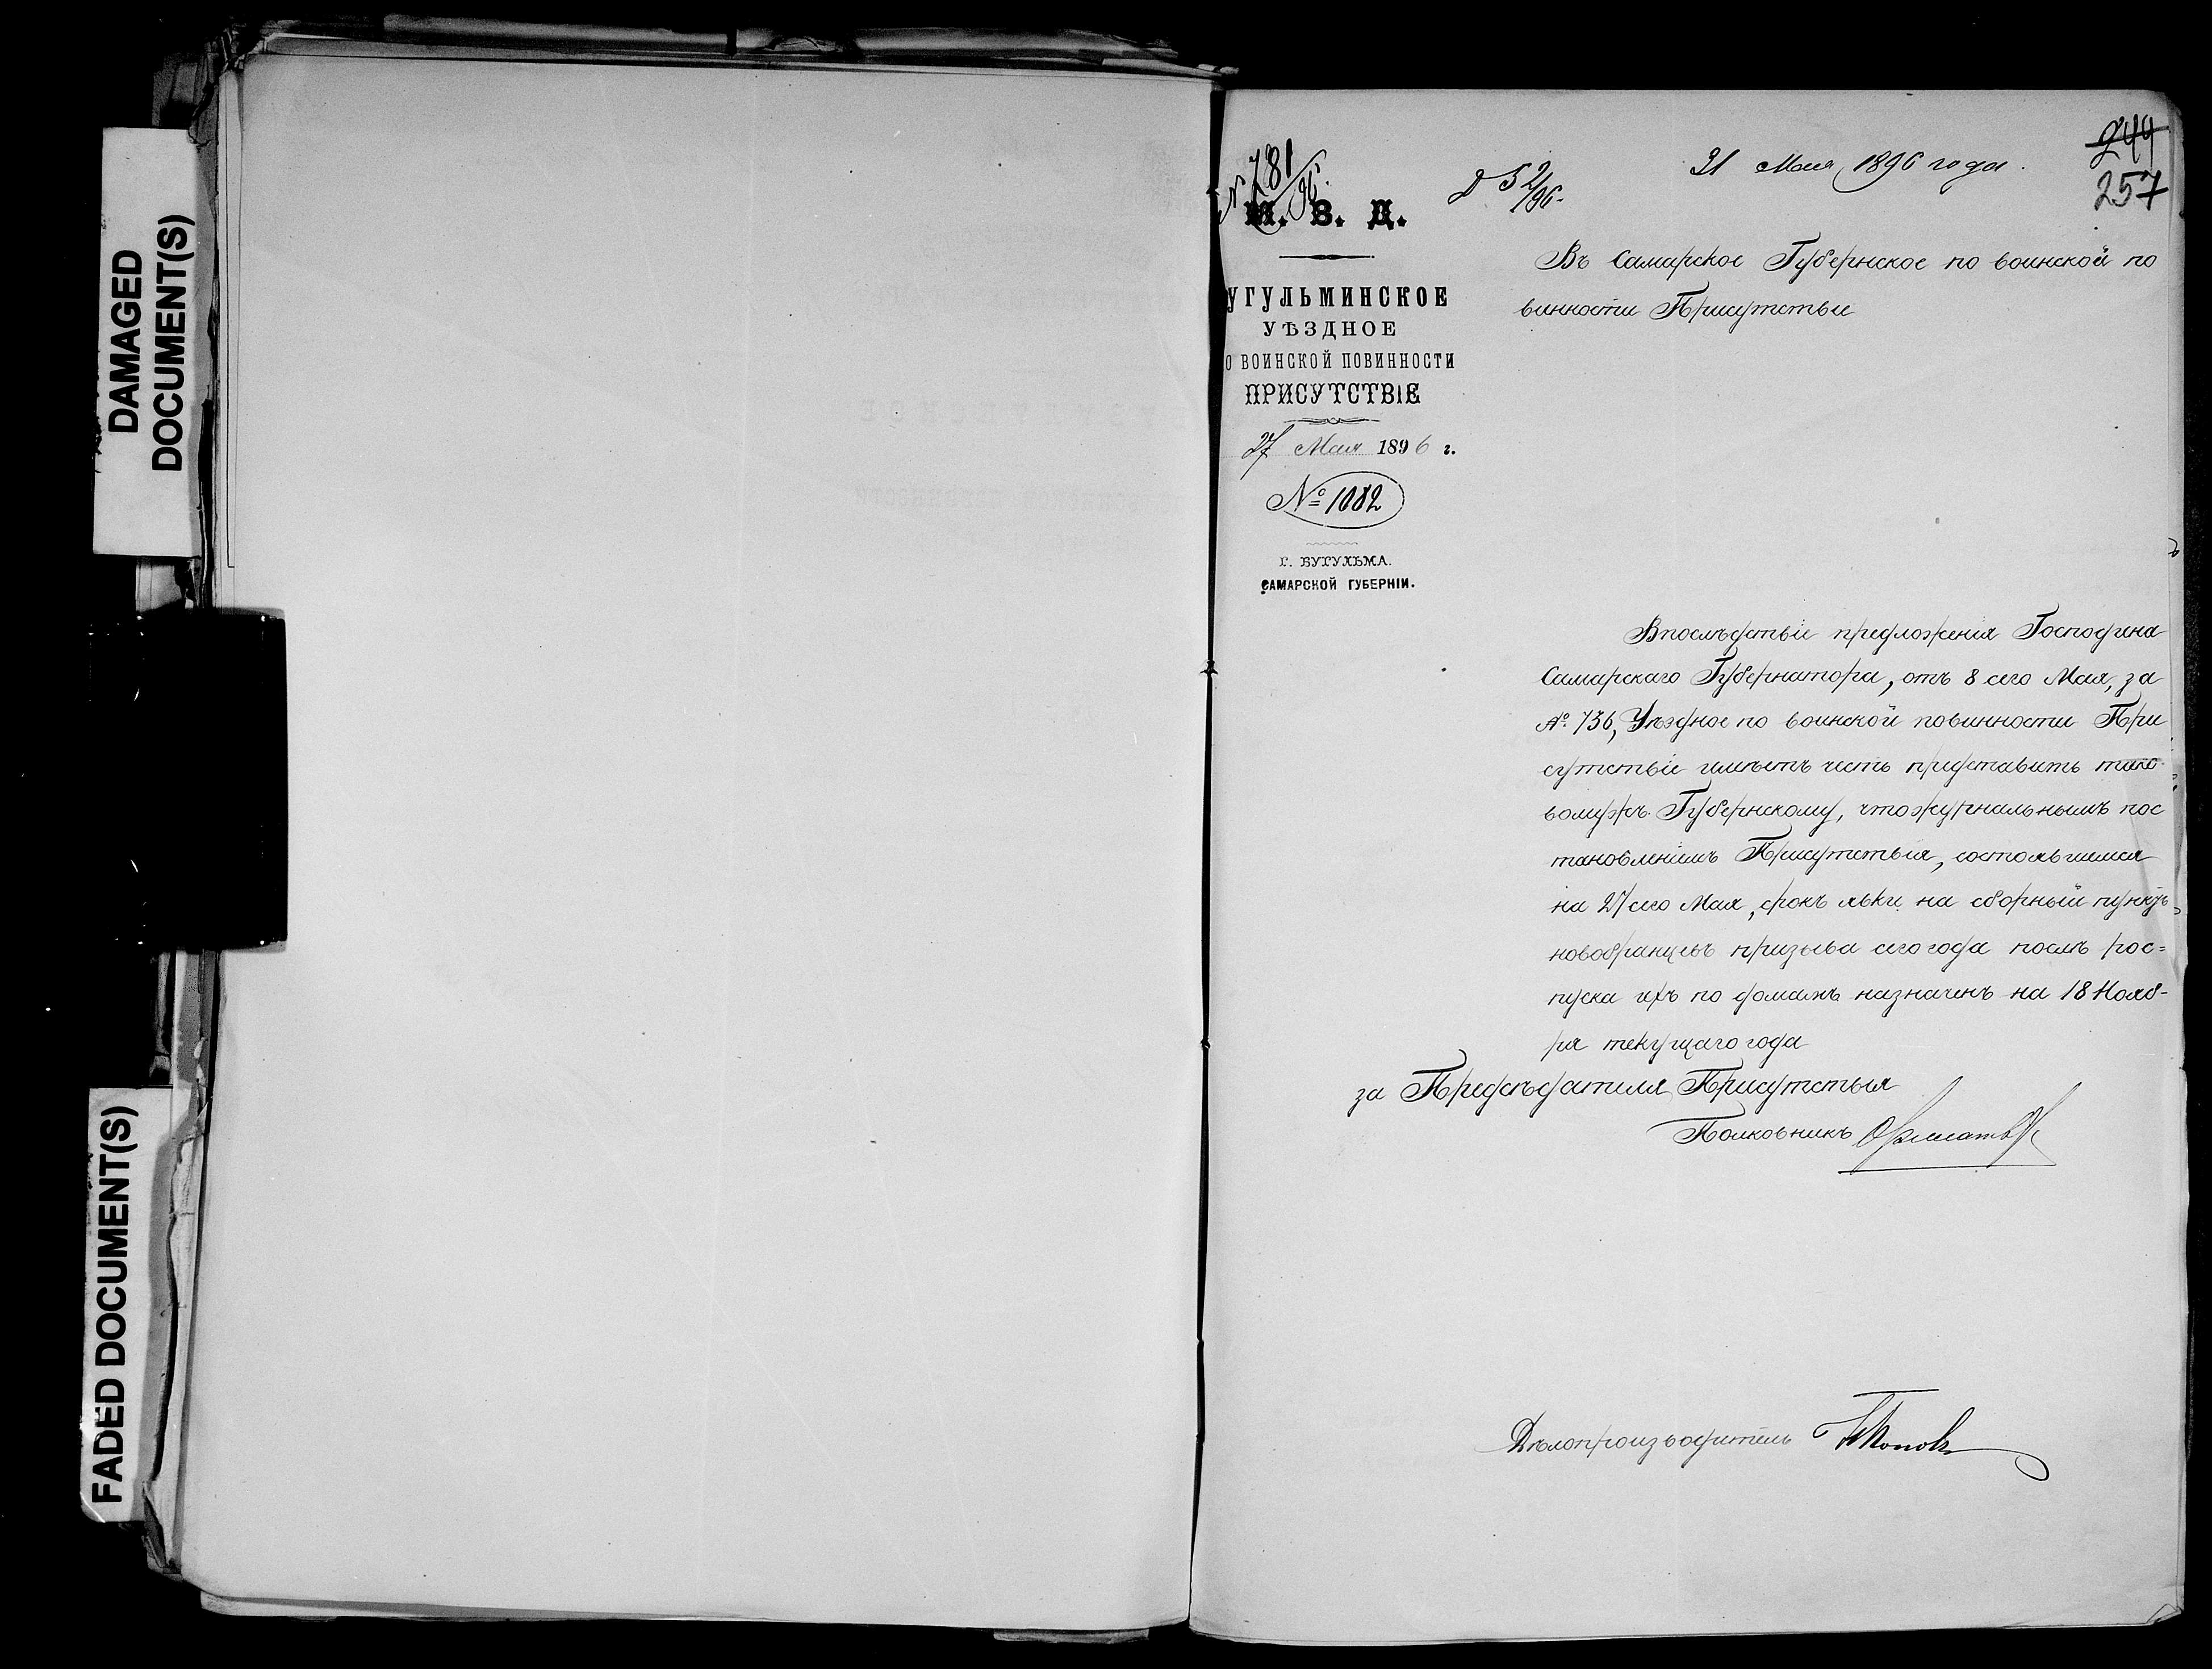 DAMAGED
DOCUMENT(S)
FADED DOCUMENT(S)
244
257
31 Мая 1896 года.
№ 781/96.
Д 52/96.
М. В. Д.
УГУЛЬМИНСКОЕ
УѢЗДНОЕ
О ВОИНСКОЙ ПОВИННОСТИ
ПРИСУТСТВІЕ
27 Мая 1896 г.
№ 1082
Г. БУГУЛЬМА.
САМАРСКОЙ ГУБЕРНІИ.
Въ Самарское Губернское по воинской по
винности Присутствіе
Впослѣдствіе предложенія Господина
Самарскаго Губернатора, отъ 8 сего Мая, за
№ 736, Уѣздное по воинской повинности При
сутствіе имѣетъ честь представить тако
вомужъ Губернскому, что журнальнымъ пос
тановленіемъ Присутствія, состоявшимся
на 27 сего Мая, срокъ явки на сборный пунктъ
новобранцевъ призыва сего года послѣ рос=
пуска ихъ по домамъ назначенъ на 18 Нояб-
ря текущаго года
за Предсѣдателя Присутствія
Полковникъ
Дѣлопроизводитель Поповъ